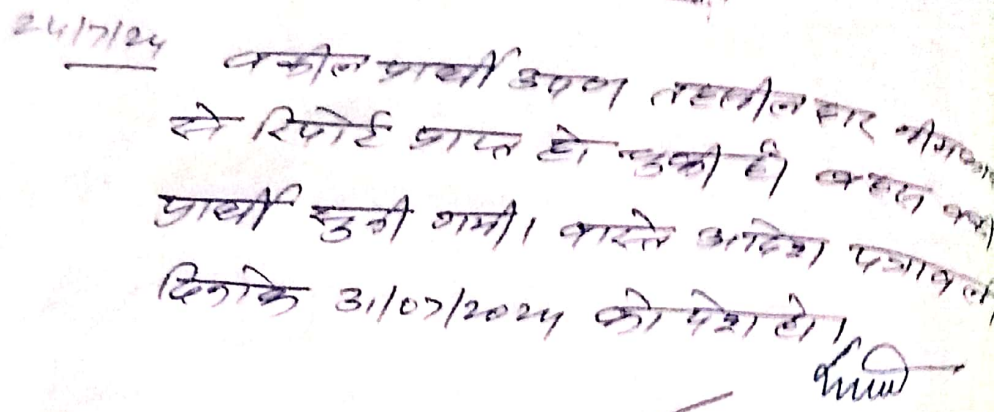 24/7/24 वकील प्रार्थी उपण तहसीलदार
से रिपोर्ट प्राप्त हो चुकी है। बहस वकील
प्रार्थी सुनी गयी। वास्ते आदेश पत्रावली
दिनांक 31/07/2024 को पेश हो।